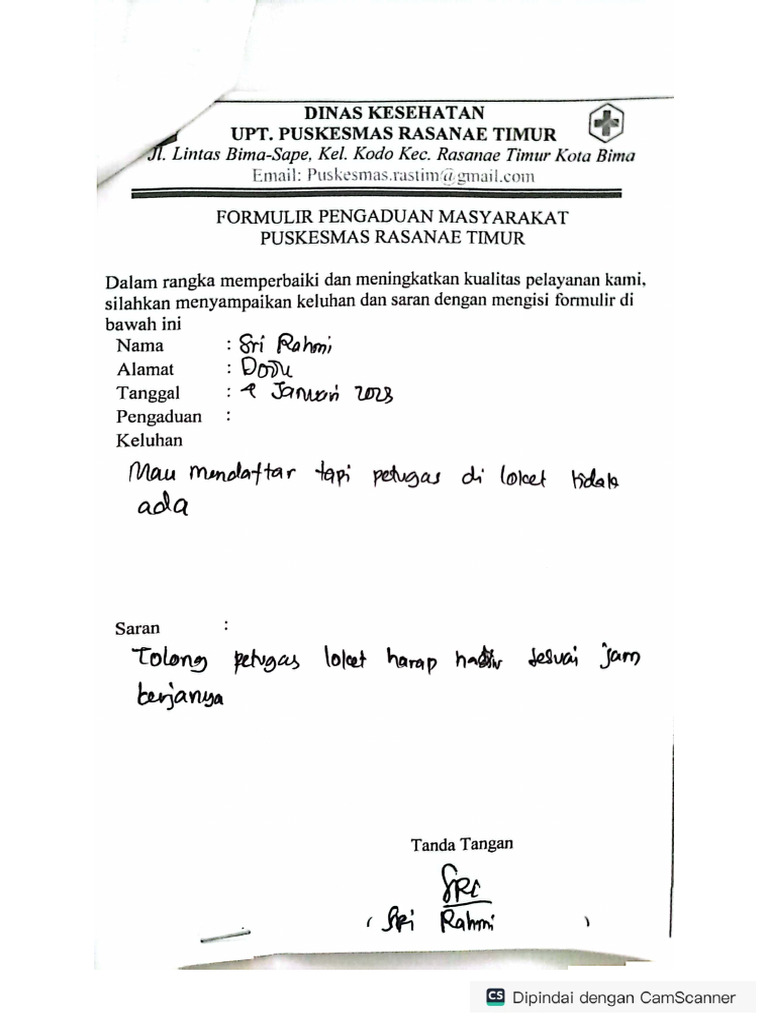 DINAS KESEHATAN
UPT. PUSKESMAS RASANAE TIMUR
Jl. Lintas Bima-Sape, Kel. Kodo Kec. Rasanae Timur Kota Bima
Email: Puskesmas.rastim@gmail.com
FORMULIR PENGADUAN MASYARAKAT
PUSKESMAS RASANAE TIMUR
Dalam rangka memperbaiki dan meningkatkan kualitas pelayanan kami,
silahkan menyampaikan keluhan dan saran dengan mengisi formulir di
bawah ini
Nama : Sri Rahmi
Alamat : Dodu
Tanggal : Januari 2023
Pengaduan :
Keluhan
Mau mendaftar tapi petugas di loket tidak
ada
Saran :
Tolong petugas loket harap hadir sesuai jam
kerjanya
Tanda Tangan
SRi
( SRi Rahmi )
CS Dipindai dengan CamScanner